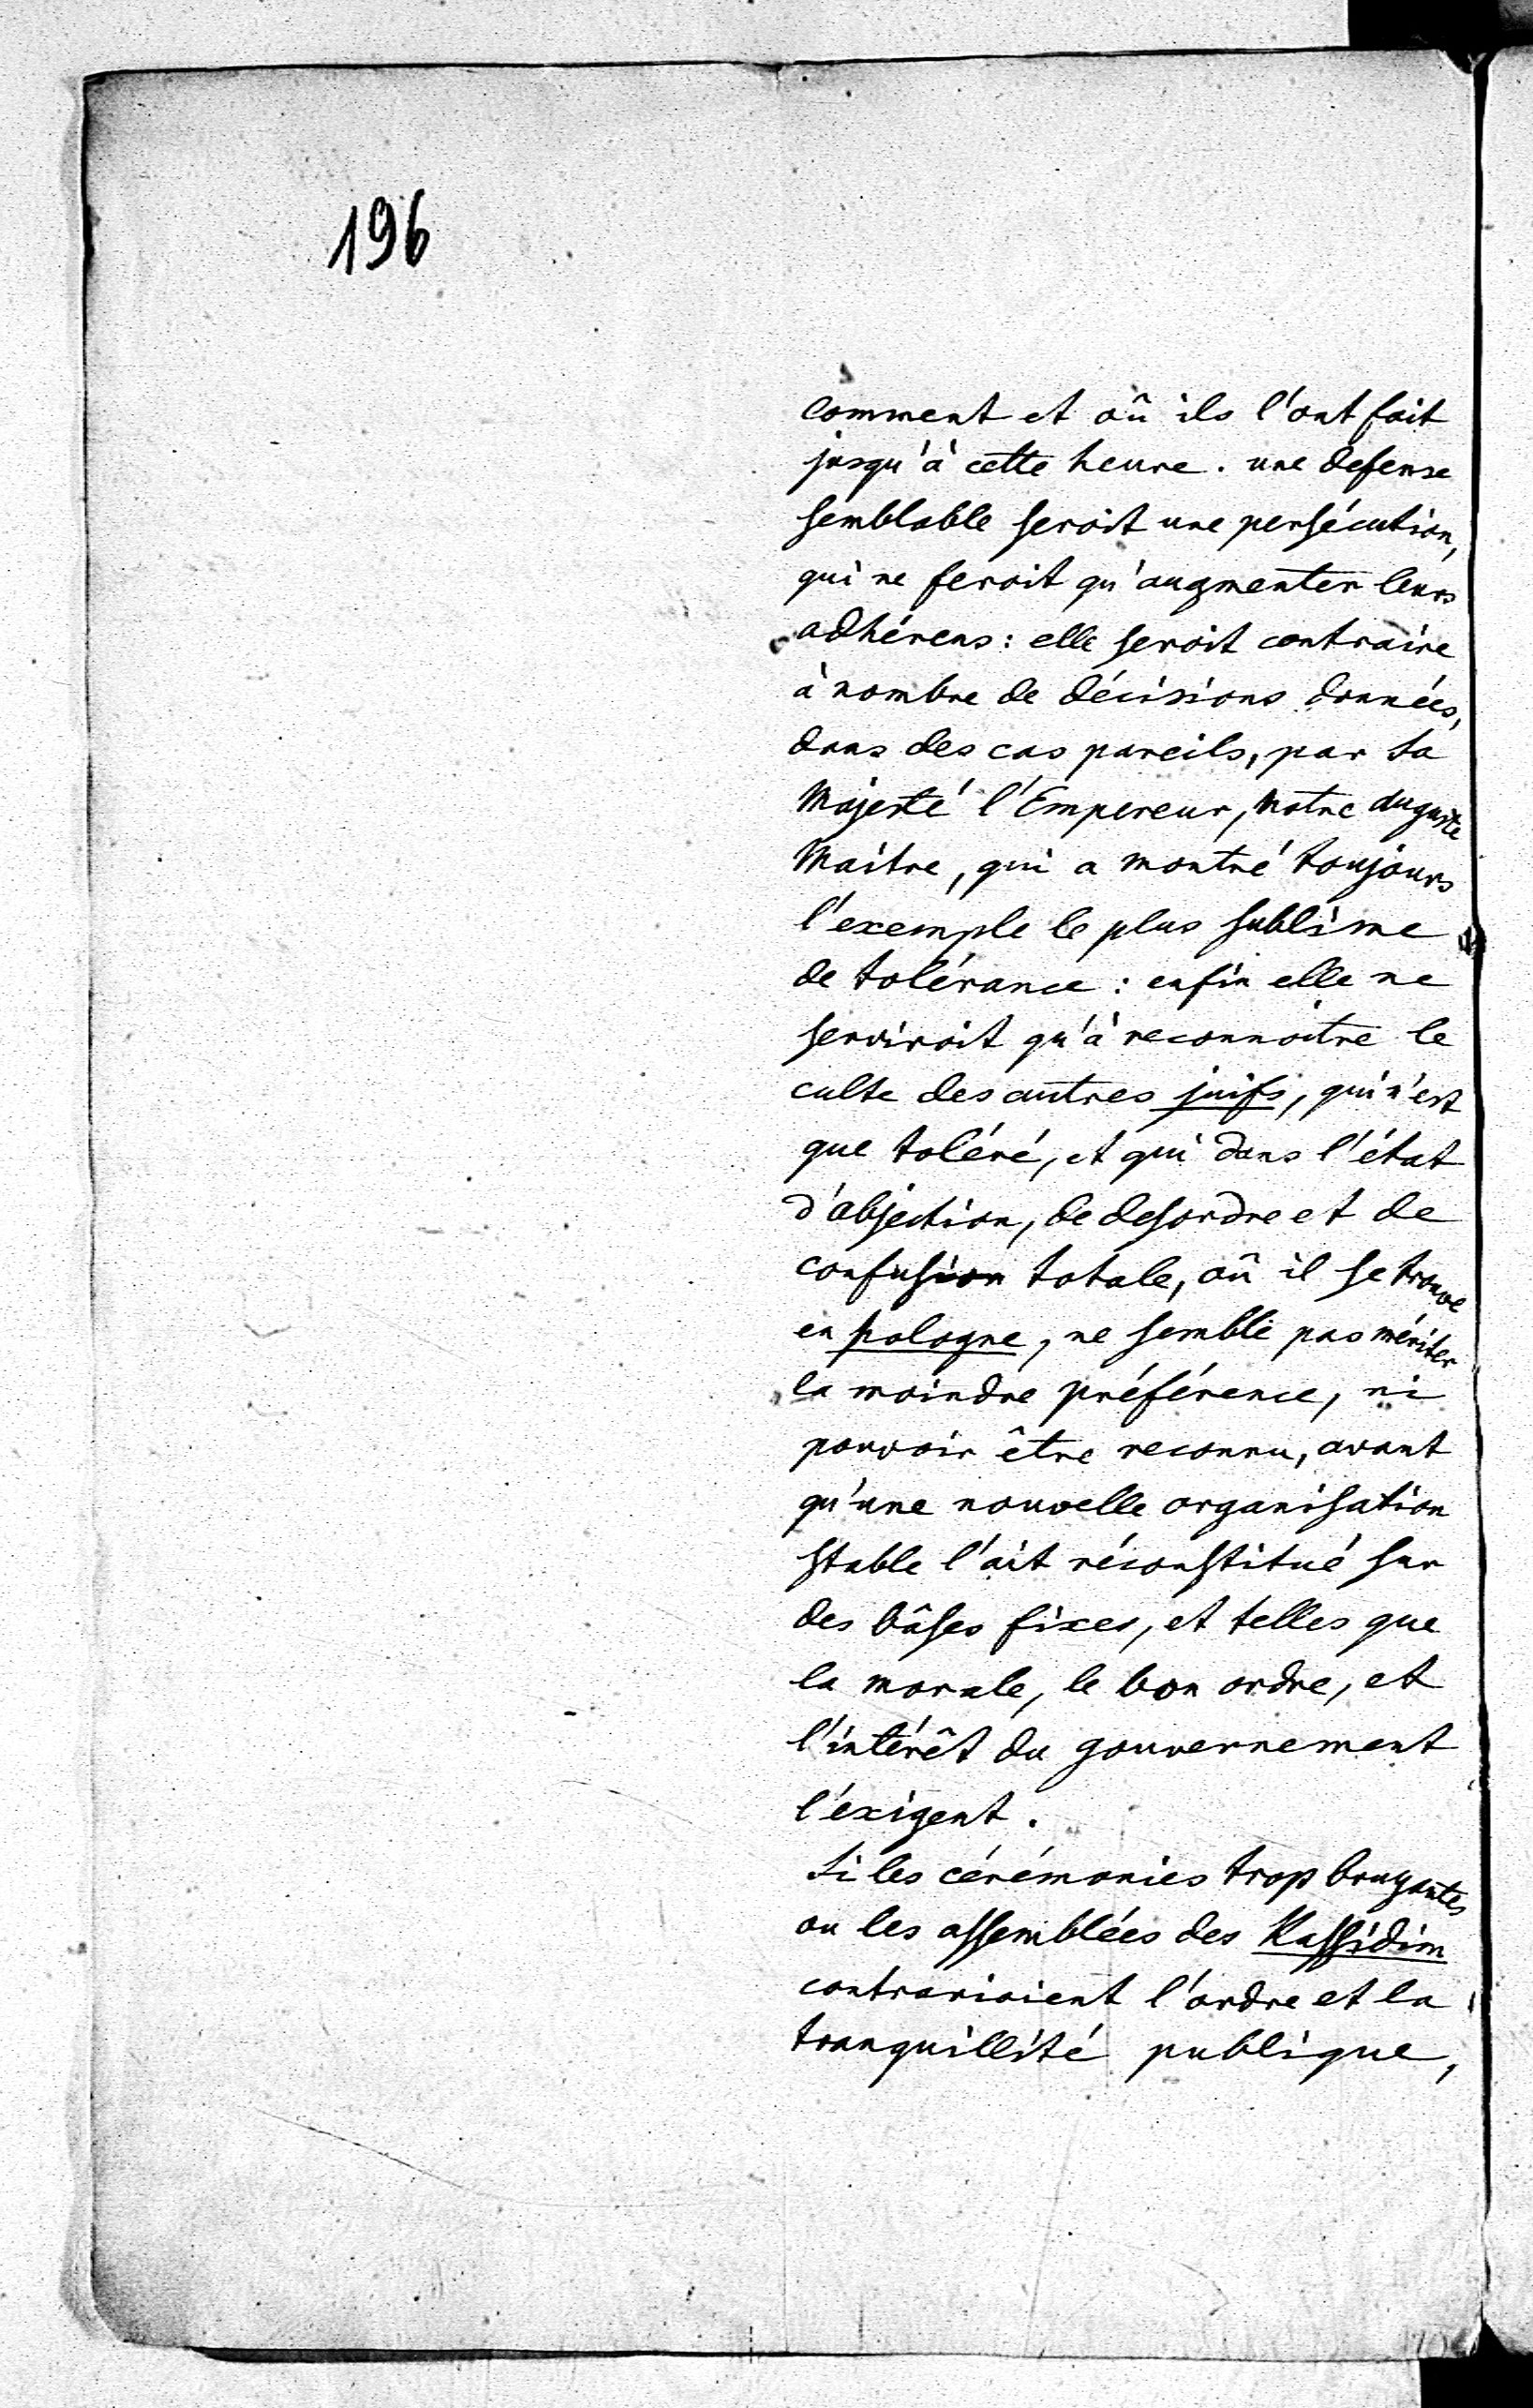 196
comment et où ils l'ont fait
jusqu'à cette heure. une defense
semblable seroit une persécution,
qui ne feroit qu'augmenter leurs
adhérens: elle seroit contraire
à nombre de décisions données,
dans des cas pareils, par Sa
Majesté l'Empereur, Notre Auguste
Maitre, qui a montré toujours
l'exemple le plus sublime
de tolérance: enfin elle ne
serviroit qu'à reconnoitre le
culte des autres juifs, qui n'est
que toléré, et qui dans l'état
d'abjection, de desordre et de
confusion totale, où il se trouve
en pologne, ne semble pas mériter
la moindre préférence, ni
pouvoir être reconnu, avant
qu'une nouvelle organisation
stable l'ait réconstitué sur
des bâses fixes, et telles que
la morale, le bon ordre, et
l'intérêt du gouvernement
l'éxigent.
Si les cérémonies trop bruyantes
ou les assemblées des Kassidim
contrarioient l'ordre et la
tranquillité publique,